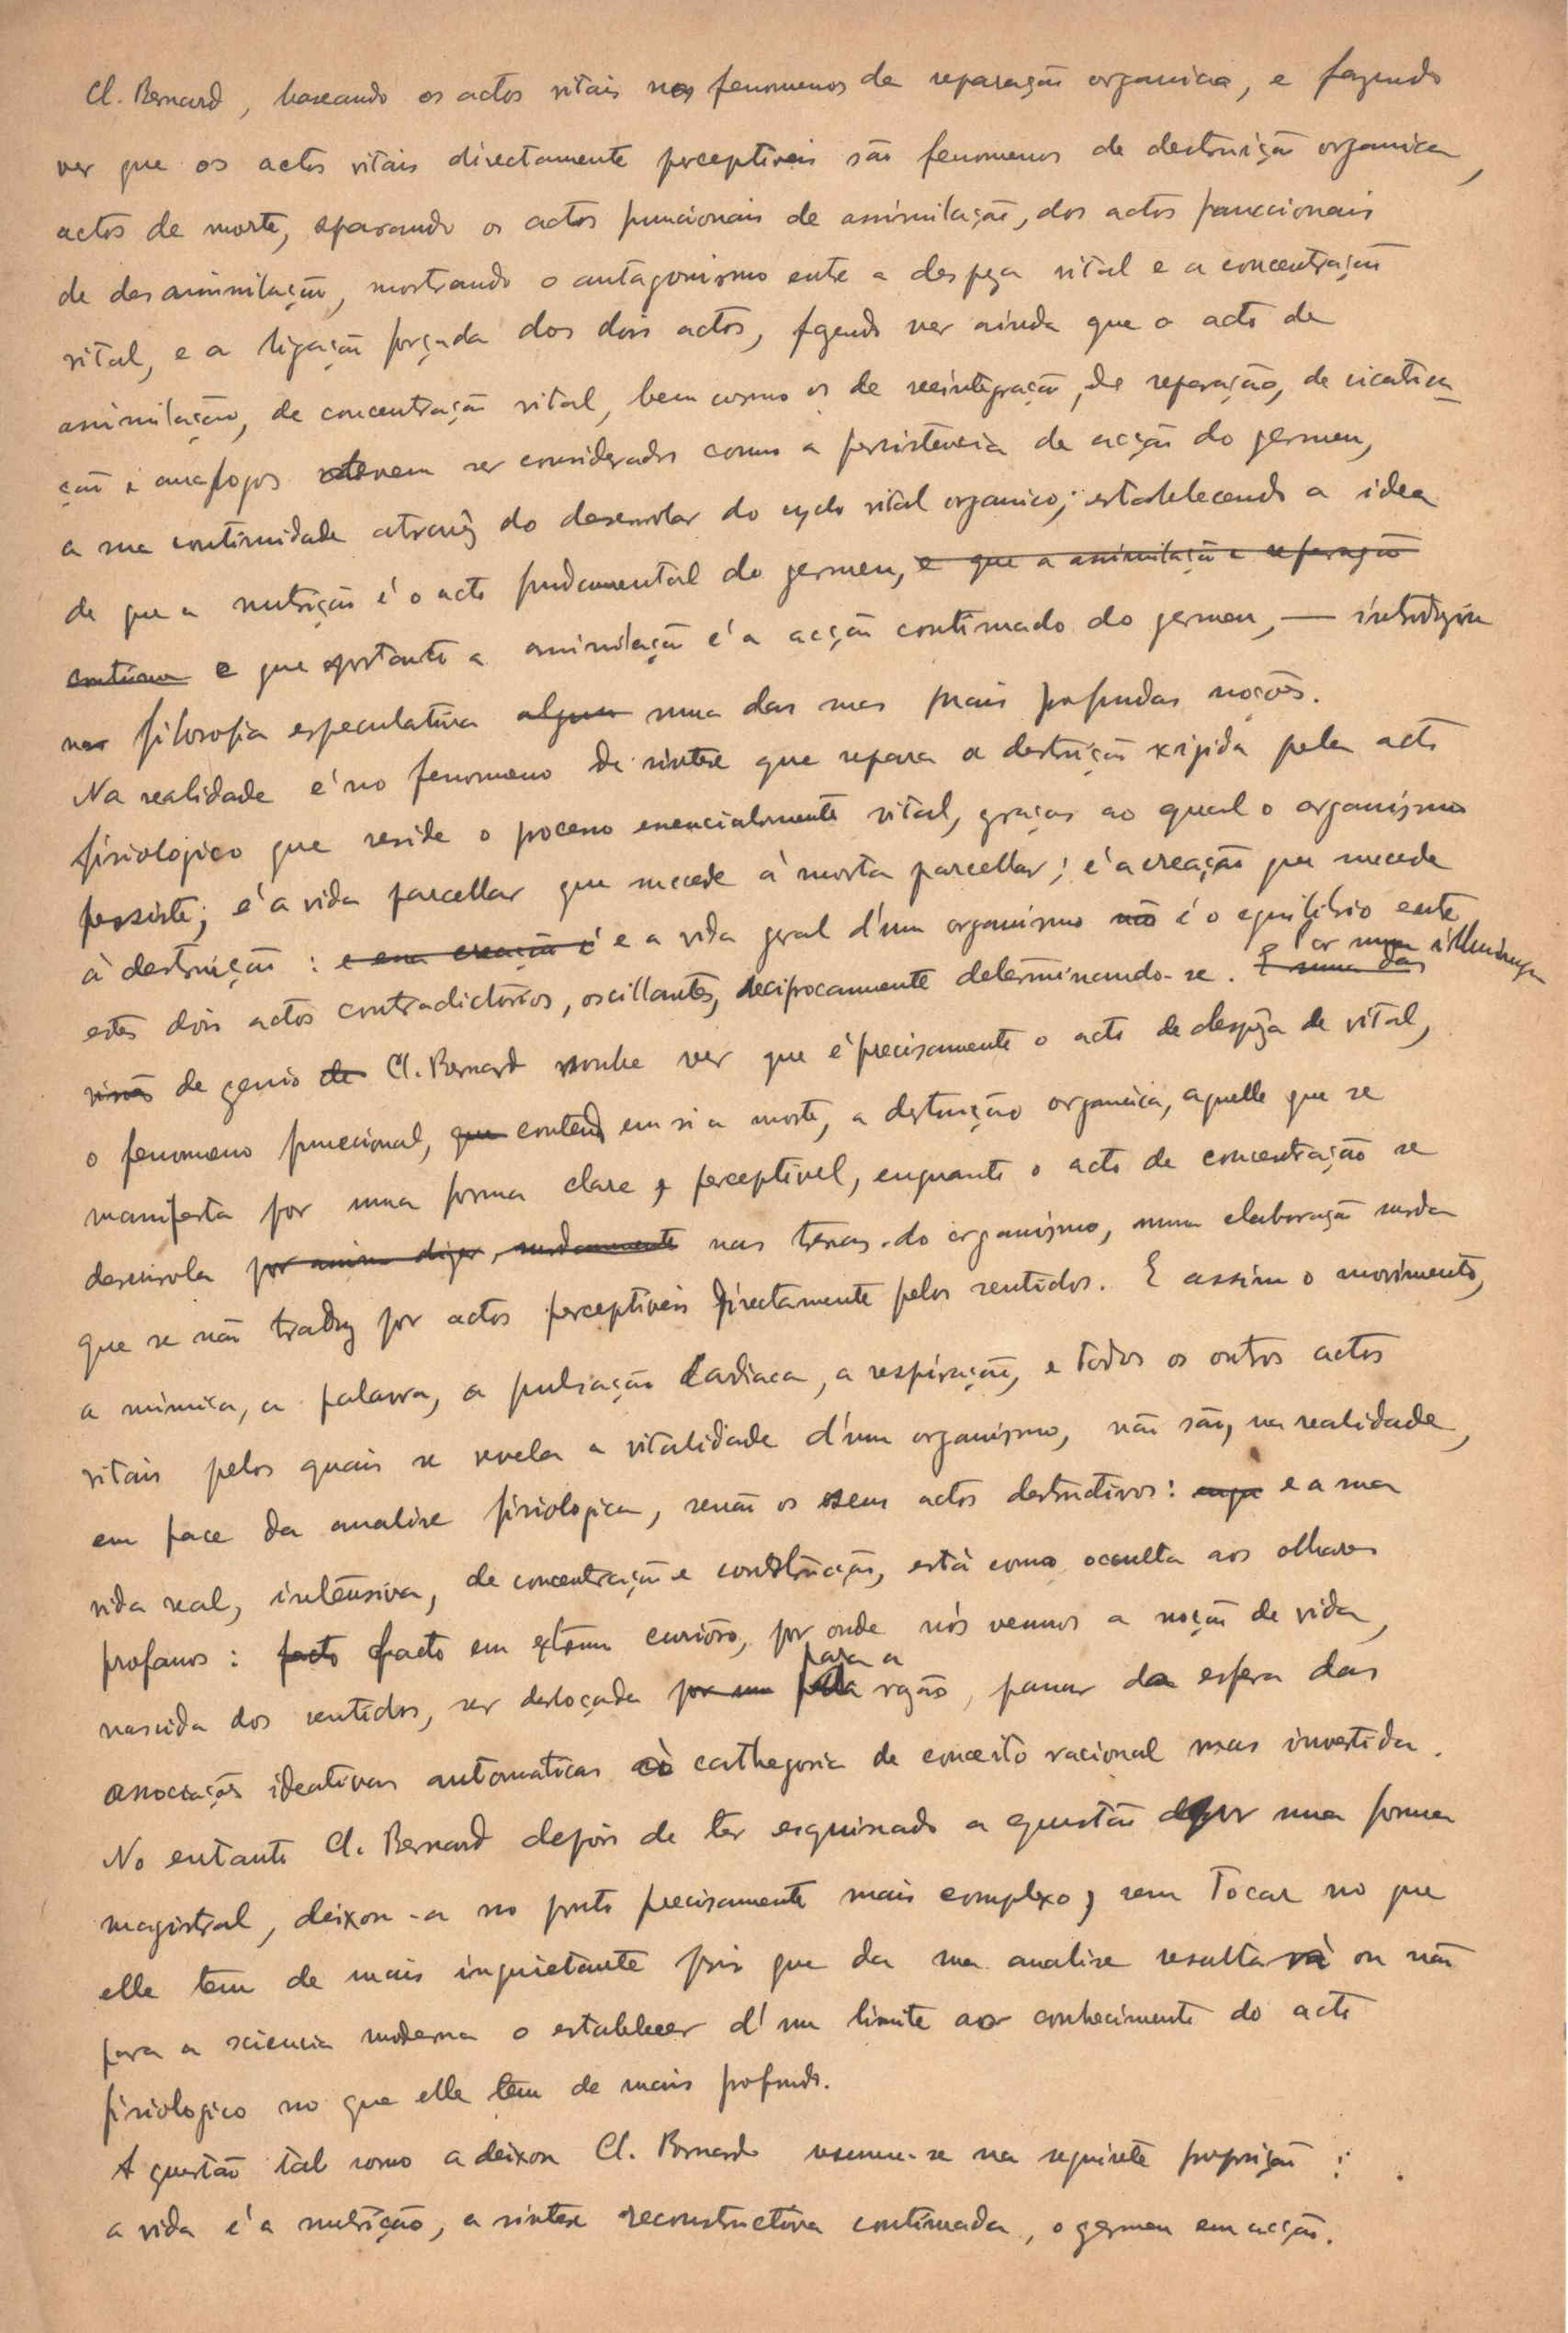 Cl. Bernard, baseando os actos vitais nos fenomenos de reparação organica, e fazendo
ver que os actos vitais directamente perceptiveis são fenomenos de destruição organica,
actos de morte, separando os actos funcionais de assimilação, dos actos funccionais
de desassimilação, mostrando o antagonismo entre a despeza vital e a concentração
vital, e a ligação forçada dos dois actos, fazendo ver ainda que o acto de
assimilação, de concentração vital, bem como os de reeintegração, de reparação, de cicatisa
ção e analogos devem ser considerados como a persistencia da acção do germen,
a sua continuidade atravez do desenrolar do cyclo vital organico; estabelecendo a idea
de que a nutrição é o acto fundamental do germen, e que a assimilação e reparação
continua e que portanto a assimilação é a acção continuado do germen, — introduziu
na filosofia especulativa alguma uma das suas mais profundas noções.
Na realidade é no fenomeno de sintese que repara a destruição exigida pelo acto
fisiologico que reside o processo essencialmente vital, graças ao qual o organismo
persiste; é a vida parcellar que succede á morte parcellar; é a creação que succede
á destruição : e essa creação é e a vida geral d'um organismo não é o equilibrio entre
estes dois actos contradictorios, oscillantes, reciprocamente determinando-se. E numa das
Por uma illuminação
visões de genio de Cl. Bernard soube ver que é precisamente o acto de despeza de vital,
o fenomeno funccional, que contendo em si a morte, a destruição organica, aquelle que se
manifesta por uma forma clara e perceptivel, enquanto o acto de concentração se
desenrola por assim dizer, surdamente nas trevas do organismo, numa elaboração surda
que se não traduz por actos perceptiveis directamente pelos sentidos. E assim o movimento,
a mimica, a palavra, a pulsação cardiaca, a respiração, e todos os outros actos
vitais pelos quais se revela a vitalidade d'um organismo, não são, na realidade,
em face da analise fisiologica, senão os seus actos destructivos: e a sua
vida real, intensiva, de concentração e construcção, está como occulta aos olhares
profanos : facto facto em extremo curioso, por onde nós vemos a noção de vida,
nascida dos sentidos, ser deslocada por um para a razão, passar da esfera das
associações ideativas automaticas á cathegoria de conceito racional mas invertida.
No entanto Cl. Bernard depois de ter esquissado a questão por uma forma
magistral, deixou-a no ponto precisamente mais complexo, sem tocar no que
elle tem de mais inquietante pois que da sua analise resultará ou não
para a sciencia moderna o establecer d'um limite ao conhecimento do acto
fisiologico no que elle tem de mais profundo.
A questão tal como a deixou Cl. Bernard resume-se na seguinte proposição :
a vida é a nutrição, a sintese reconstructiva continuada, o germen em acção.